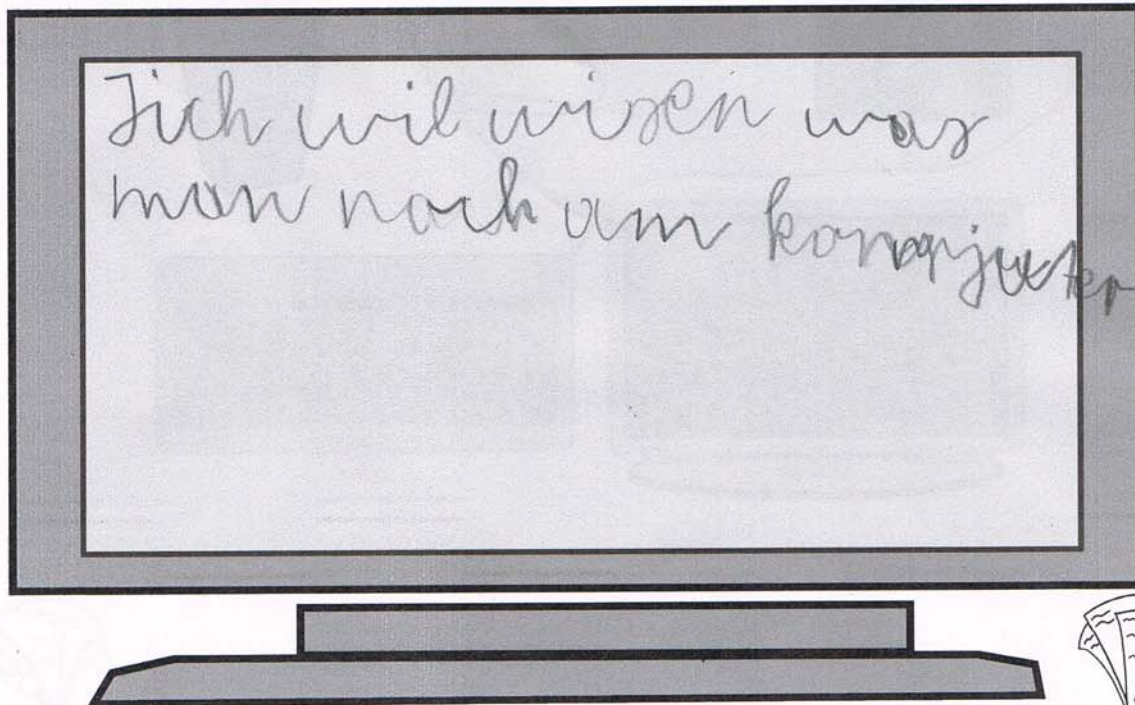 Jich wil wisen was
man noch am kompjuter